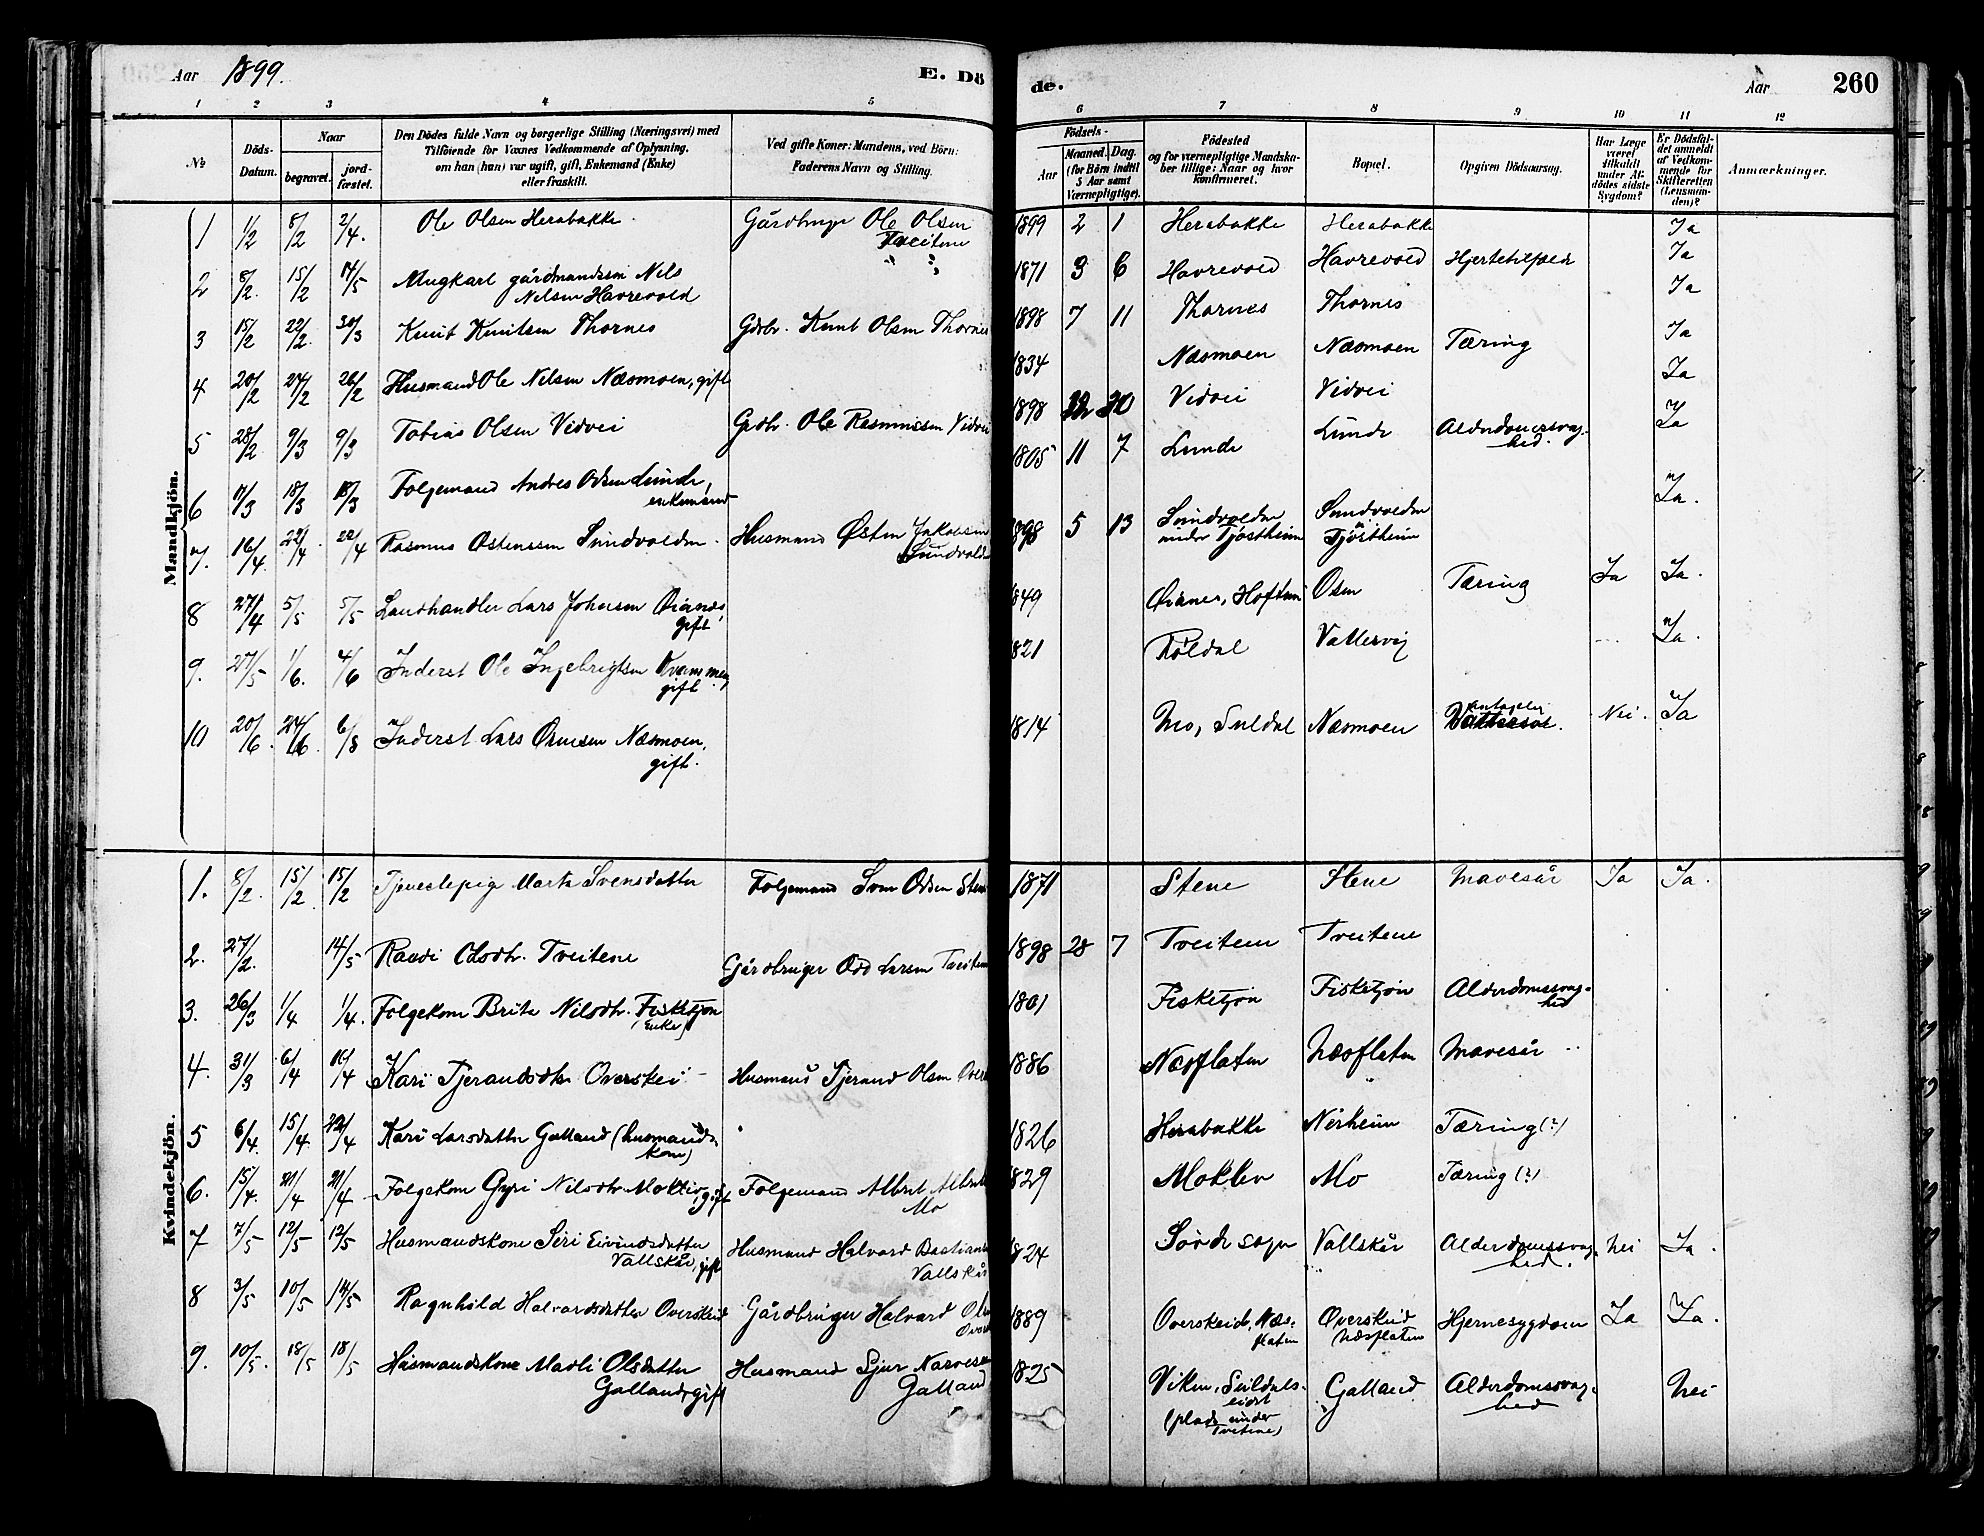 Aar 1899. E. Dö de. Aar 260
1 2 3 4 5 6 7 8 9 10 11 12
№
Döds-Datum.
Naar
begravet.
jordfæstet.
Den Dödes fulde Navn og borgerlige Stilling (Næringsvei) med
Tilföiende for Voxnes Vedkommende af Oplysning,
om han (hun) var ugift, gift, Enkemand (Enke)
eller fraskilt.
Ved gifte Koner: Mandens, ved Börn:
Faderens Navn og Stilling.
Födsels-
Aar
Maaned. Dag.
(for Börn indtil
5 Aar samt
Værnepligtige).
Födested
og for værnepligtige Mandska-
ber tillige: Naar og hvor
konfirmeret.
Bopæl.
Opgiven Dödsaarsag.
Har Læge
været
tilkaldt
under Af-
dödes sidste
Sygdom?
Er Dödsfal-
det anmeldt
af Vedkom-
mende for
Skifteretten
(Lensman-
den)?
Anmærkninger.
Mandkjön.
1 1/2 8/2 2/4. Ole Olsen Herabakke. Gårdbruger Ole Olsen Tveitene 1899 2 1 Herabakke Herabakke Ja
2 8/2. 15/2 14/5 Ungkarl gårdmandssøn Nils
Nilsen Havrevold " " 1871 3 6 Havrevold Havrevold Hjertetilfælde Ja
3 15/2 22/2. 30/3 Knut Knutsen Thornes Gdbr. Knut Olsen Thornes 1898 7 11 Thornes Thornes Ja
4 20/2 27/2 26/2 Husmand Ole Nilsen Næsmoen, gift 1834 Næsmoen Næsmoen Tæring Ja
5 28/2 9/3 9/3 Tobias Olsen Vidvei Grdbr. Ole Rasmussen Vidvei 1898 12 30 Vidvei Vidvei Ja
6 11/3 18/3 18/3 Folgemand Andres Odsen Lunde,
enkemand 1805 11 7 Lunde Lunde Alderdomssvag-
hed. Ja
7. 16/4. 22/4. 22/4 Rasmus Østensen Sundvolden. Husmand Østen Jakobsen
Sundvolden 1898 5 13 Sundvolden
under Tjøstheim Sundvolden
Tjøstheim Ja.
8 27/4 5/5 5/5 Landhandler Lars Johnsen Øianes,
gift 1849 Øianes, Hoften Osen Tæring Ja Ja.
9. 27/5 1/6. 4/6 Inderst Ole Ingebrigtsen
gift 1821 Røldal Vattersvig ... Ja.
10 20/6. 24/6. 6/8 Inderst Lars Næsmoen,
gift. 1814 Mo, Suldal Næsmoen Vattersot. Nei. Ja
Kvindekjön.
1. 8/2. 15/2 15/2 Tjenestepig Marta Svensdatter Folgemand Sven Odsen Stene 1871 Stene Stene Mavesår Ja Ja.
2. 27/2. 14/5 Ravdi Odsdtr. Tveitene Gårdbruger Odd Larsen Tveitene 1898 28 7 Tveitene Tveitene
3. 26/3 1/4 1/4. Folgekone Brite Nilsdtr. Fisketjøn
(Enke) 1801 Fisketjøn Fisketjøn Alderdomssvag-
hed
4. 31/3 6/14 10/4 Kari Tjerandsdtr Overskei Husmand Tjerand Olsen Overs 1886 Næsflaten Næsflaten Mavesår
5 6/4. 15/4. 22/4 Kari Larsdatter Galland (husmands
kone) 1826 Herabakke Nerheim Tæring (?)
6. 15/4. 21/4 21/4 Folgekone Gyri Nilsdtr Mokleiv, gift Folgemand Albret Albret
Mo 1829 Moklev Mo Tæring (?)
7 7/5 12/5 12/5 Husmandskone Siri Eivindsdatter
Vallskår, gift Husmand Halvard Bastians
Vallskår 1824 Sørde sogn Vallskår Alderdomssvag-
hed. Nei Ja.
8 3/5 10/5 14/5 Ragnhild Halvardsdatter Overskeid Gårdbruger Halvard Ols
Overs 1889 Overskeid, Næs-
flaten Overskeid
Næsflaten Hjernesygdom Ja Ja.
9. 10/5. 18/5 18/5 Husmandskone Madli Olsdatter
Galland, gift Husmand Sjur Narvesen
Galland 1825 Viken, Suldals-
eidet
(plads under
Tveitene) Galland Alderdomssvag-
hed Nei